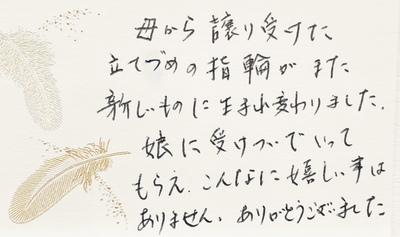 母から譲り受けた
立てづめの指輪がまた
新しいものに生まれ変わりました.
娘に受けついでいって
もらえ.こんなに嬉しい事は
ありません.ありがとうございました